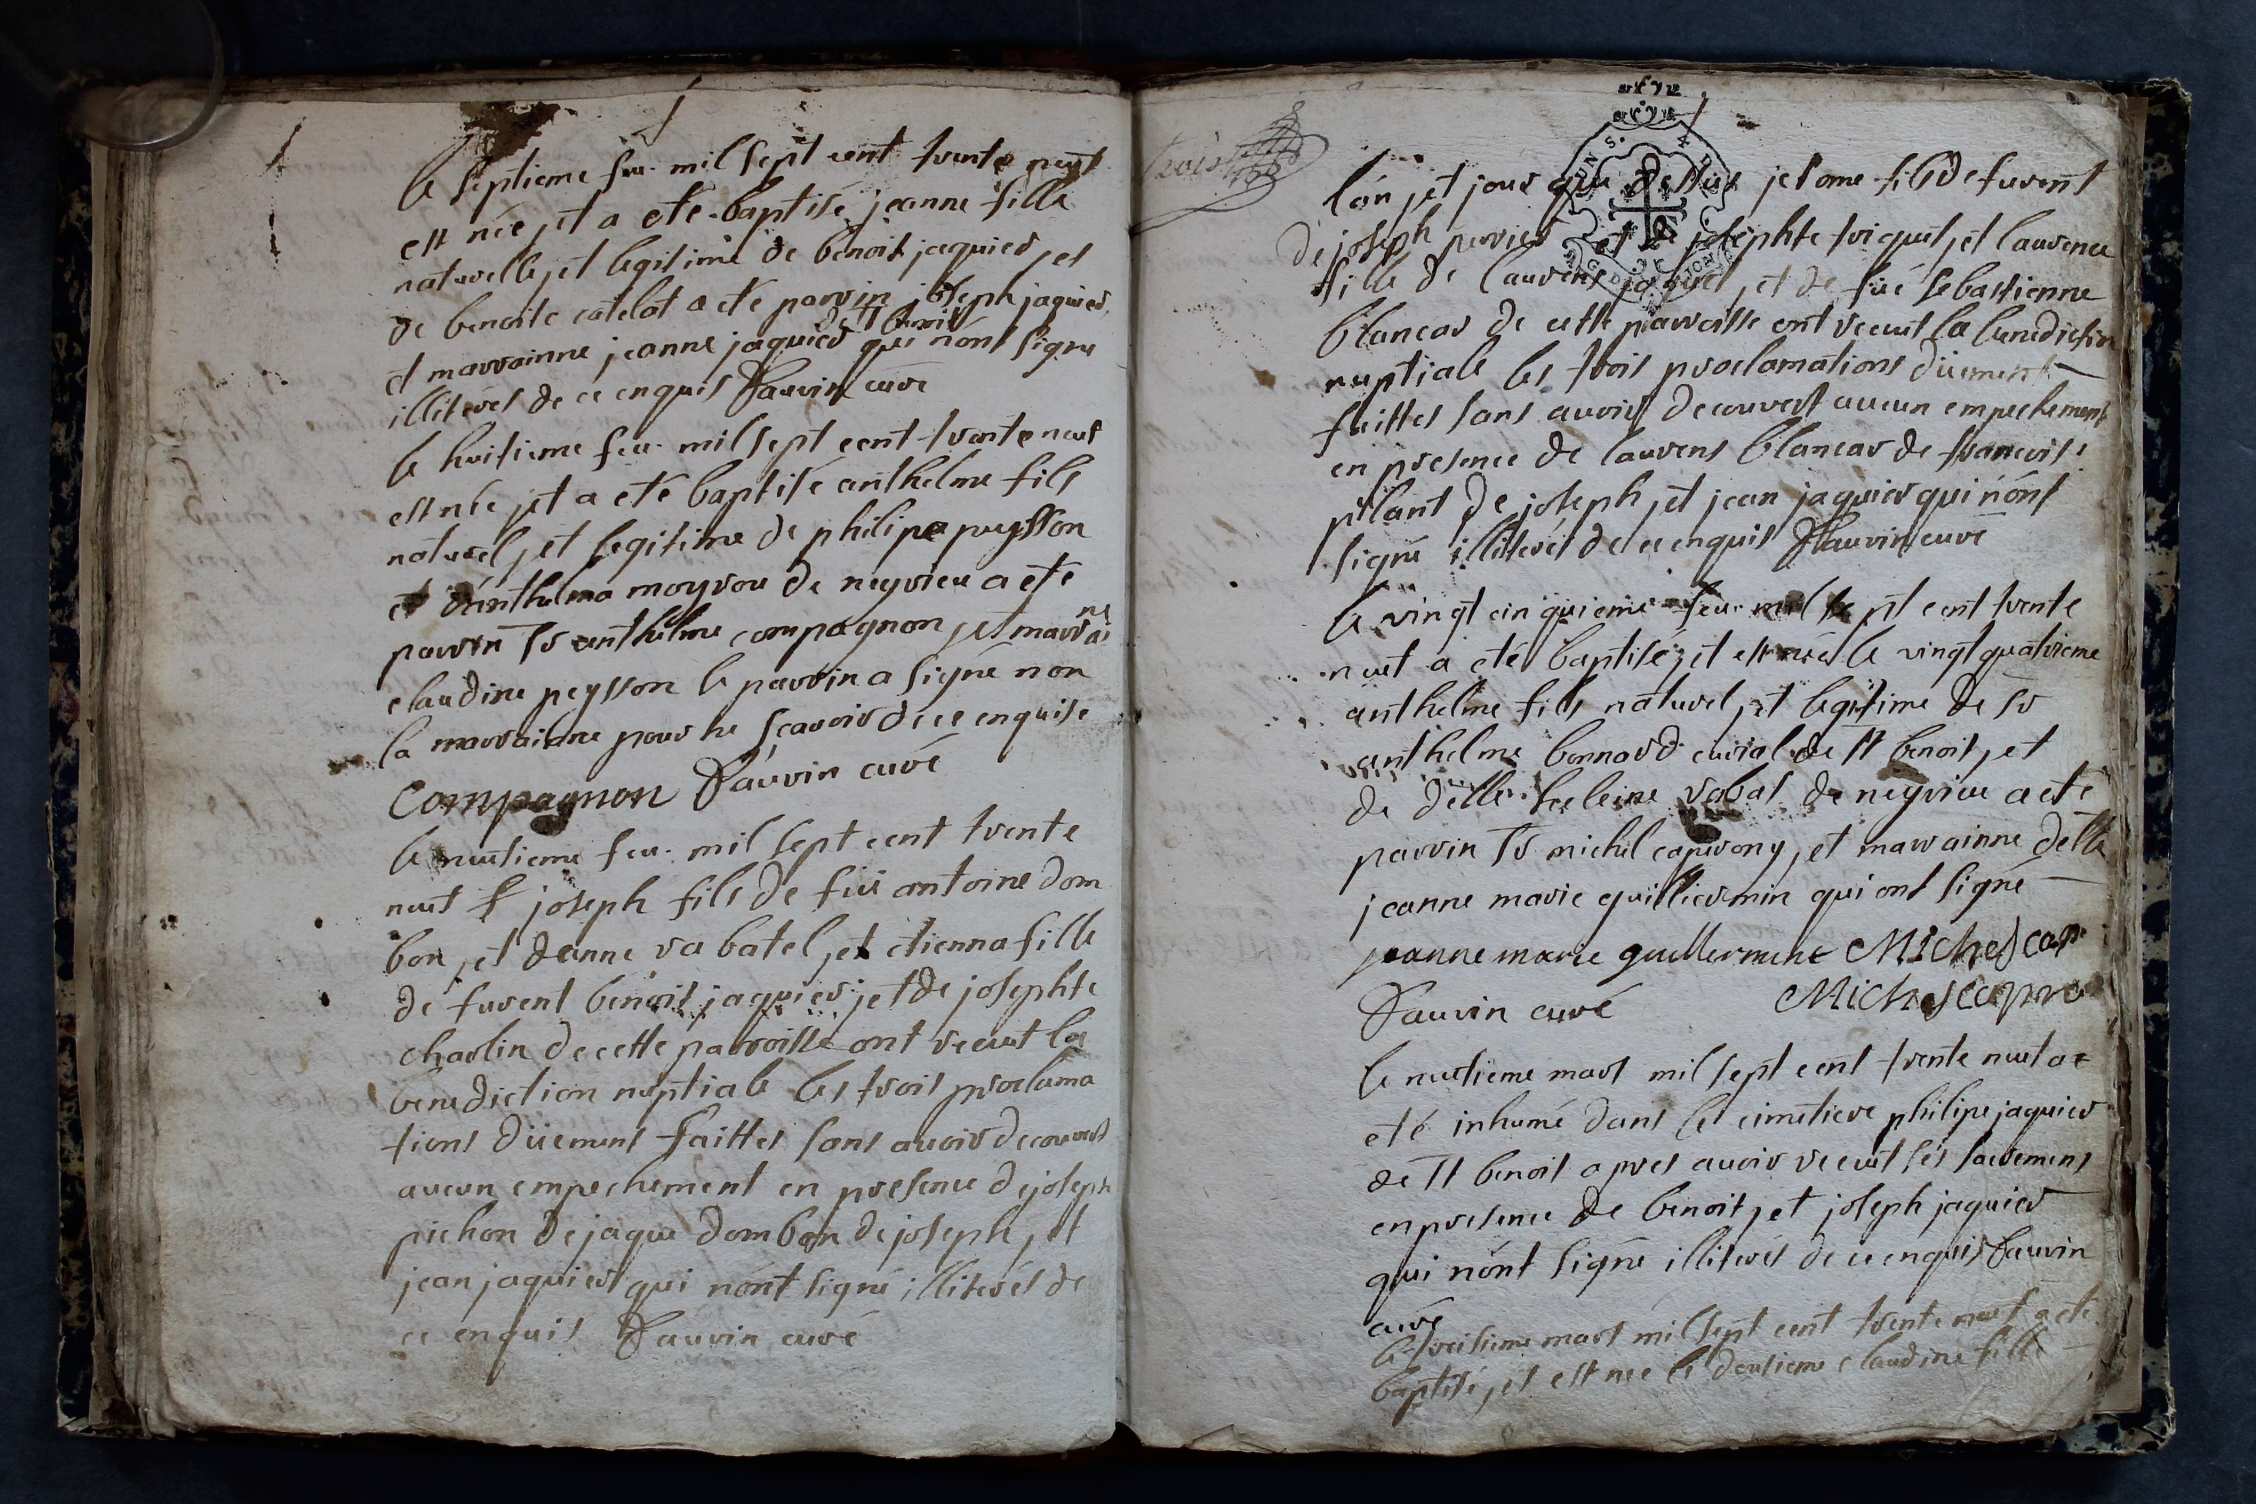 le septieme feu. mil sept cent trente neuf
est née, et a eté baptisé jeanne fille
naturelle, et legitime de benoit jaquier, et
de benoite catelot a eté parrin joseph jaquier
de st benoit
et marrainne jeanne jaquier qui n'ont signe
illiterés de ce enquis Dauvin curé
le huitieme feu. mil sept cent trente neuf
est née, et a eté baptisé anthelme fils
naturel, et legitime de philipe peysson
et d'anthelma moyrou de neyrieu a eté
ne
parrin Sr anthelme compagnon, et marrai
claudine peysson le parrin a signé non
la marrainne pour ne sçavoir de ce enquise
Compagnon Dauvin curé
le neufieme feu. mil sept cent trente
neuf joseph fils de feü antoine dom
bon, et danne rabatel, et etienna fille
de furent benoit jaquier, et de josephte
charlin de cette parroisse ont recut la
benediction nuptiale les trois proclama
tions düement faittes sans avoir decouvert
aucun empechement en presence de joseph
pichon de jaque dombon de joseph, et
jean jaquier qui n'ont signé illiterés de
ce enquis Dauvin curé
trois
GENS. 4 D
G. DE DIJON
l'an, et jour que dessus jerome fils de furent
de joseph perrier et de josephte triquet, et laurence
fille de laurens jaquet, et de feüe sebastienne
blancar de cette parroisse ont recut la benediction
nuptiale les trois proclamations düement
faittes sans avoir decouvert aucun empechement
en presence de laurens blancar de francois
pillant de joseph, et jean jaquier qui n'ont
signé illiterés de ce enquis Dauvin curé
le vingt cinquieme feu. mil sept cent trente
neuf a eté baptisé, et est née le vingt quatrieme
anthelme fils naturel, et legitime de Sr
anthelme bonnard curial de st benoit, et
de delle heleine rabat de neyrieu a eté
parrin Sr michel caprony, et marrainne delle
jeanne marie guilliermin qui ont signé
jeanne marie guillermint Michel cap
Dauvin curé Michel capro
le neufieme mars mil sept cent trente neuf a
eté inhumé dans le cimetiere philipe jaquier
de st benoit apres avoir recut ses sacremens
en presence de benoit, et joseph jaquier
qui n'ont signé illiterés de ce enquis Dauvin
curé
le treisieme mars mil sept cent trente neuf a eté
baptisé, et est nee le deusieme claudine fille